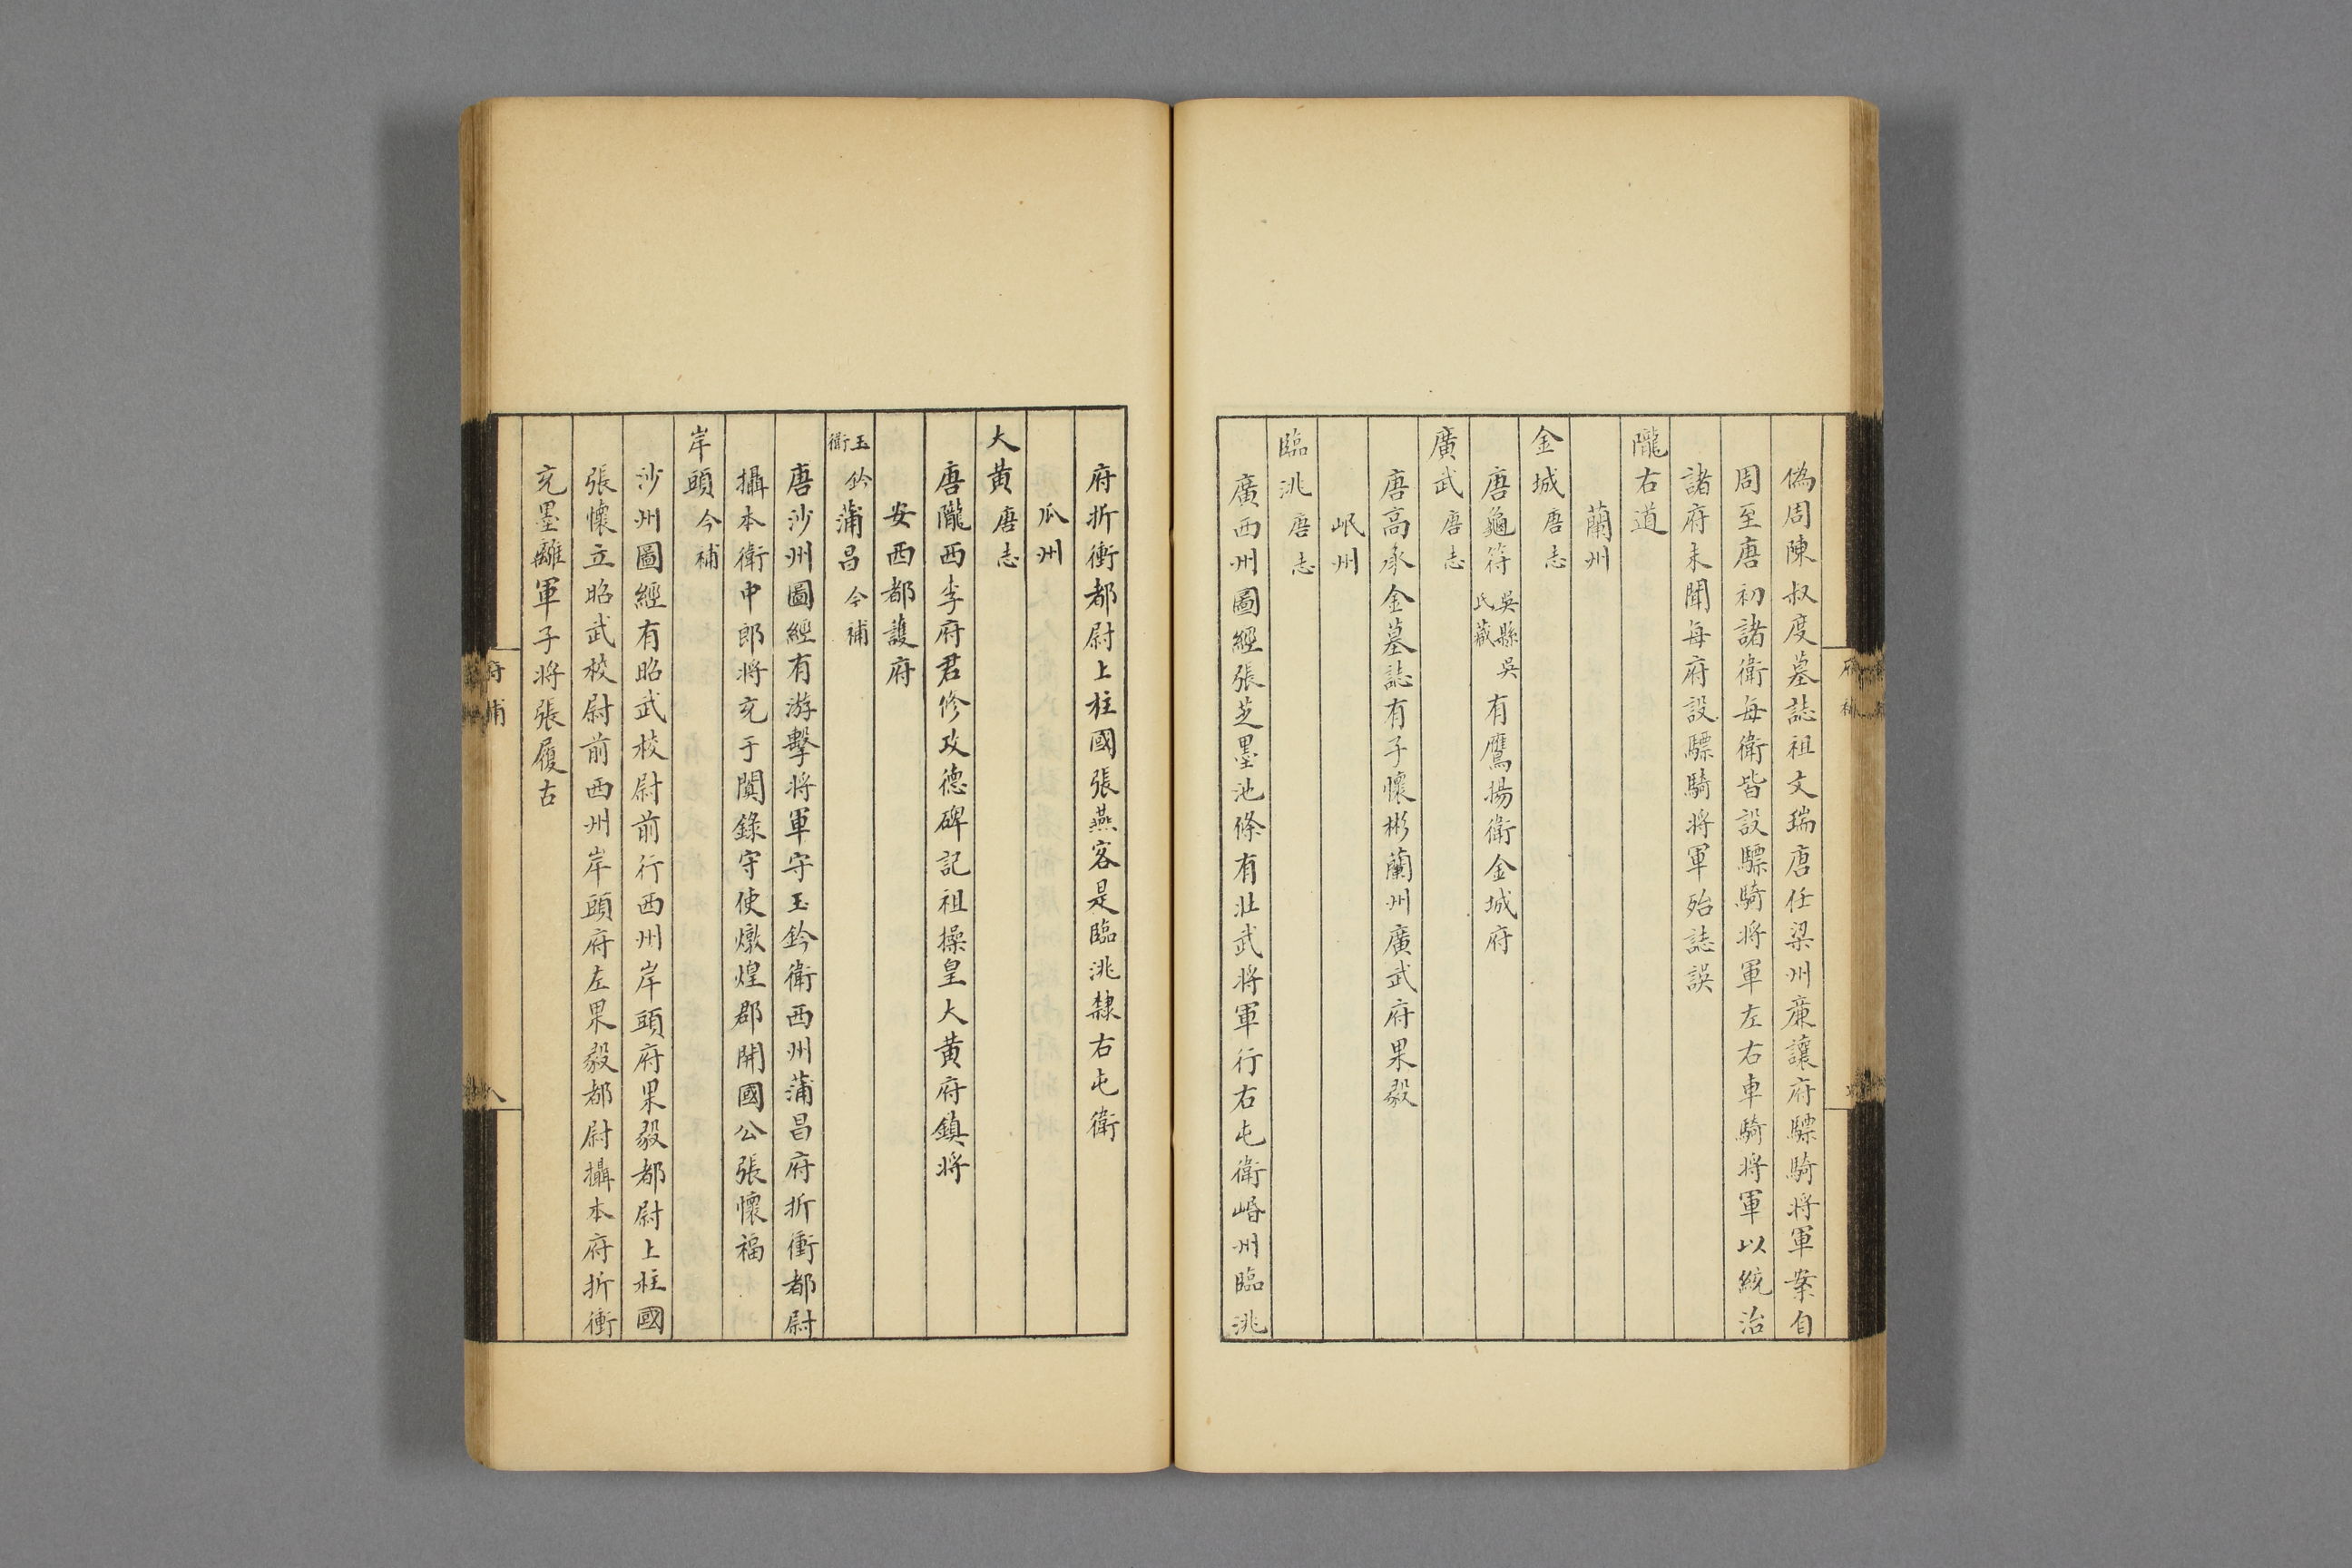 偽周陳叔度墓誌祖文瑞唐任梁州廉讓府驃騎將軍案自
周至唐初諸衛每衛皆設驃騎將軍左右車騎將軍以統治
諸府未聞每府設驃騎將軍殆誌誤
隴右道
蘭州
金城唐志
唐龜符吳縣吳氏藏有鷹揚衛金城府
廣武唐志
唐高承金墓誌有子懷彬蘭州廣武府果毅
岷州
臨洮唐志
廣西州圖經張芝墨池條有壯武將軍行右屯衛岷州臨洮
府折衝都尉上柱國張燕客是臨洮隸右屯衛
瓜州
大黃唐志
唐隴西李府君修攻德碑記祖操皇大黃府鎮將
安西都護府
玉鈐衛蒲昌今補
唐沙州圖經有游擊將軍守玉鈐衛西州蒲昌府折衝都尉
攝本衛中郎將充于闐錄守使燉煌郡開國公張懷福
岸頭今補
沙州圖經有昭武校尉前行西州岸頭府果毅都尉上柱國
張懷立昭武校尉前西州岸頭府左果毅都尉攝本府折衝
充墨離軍子將張履古
府補
八